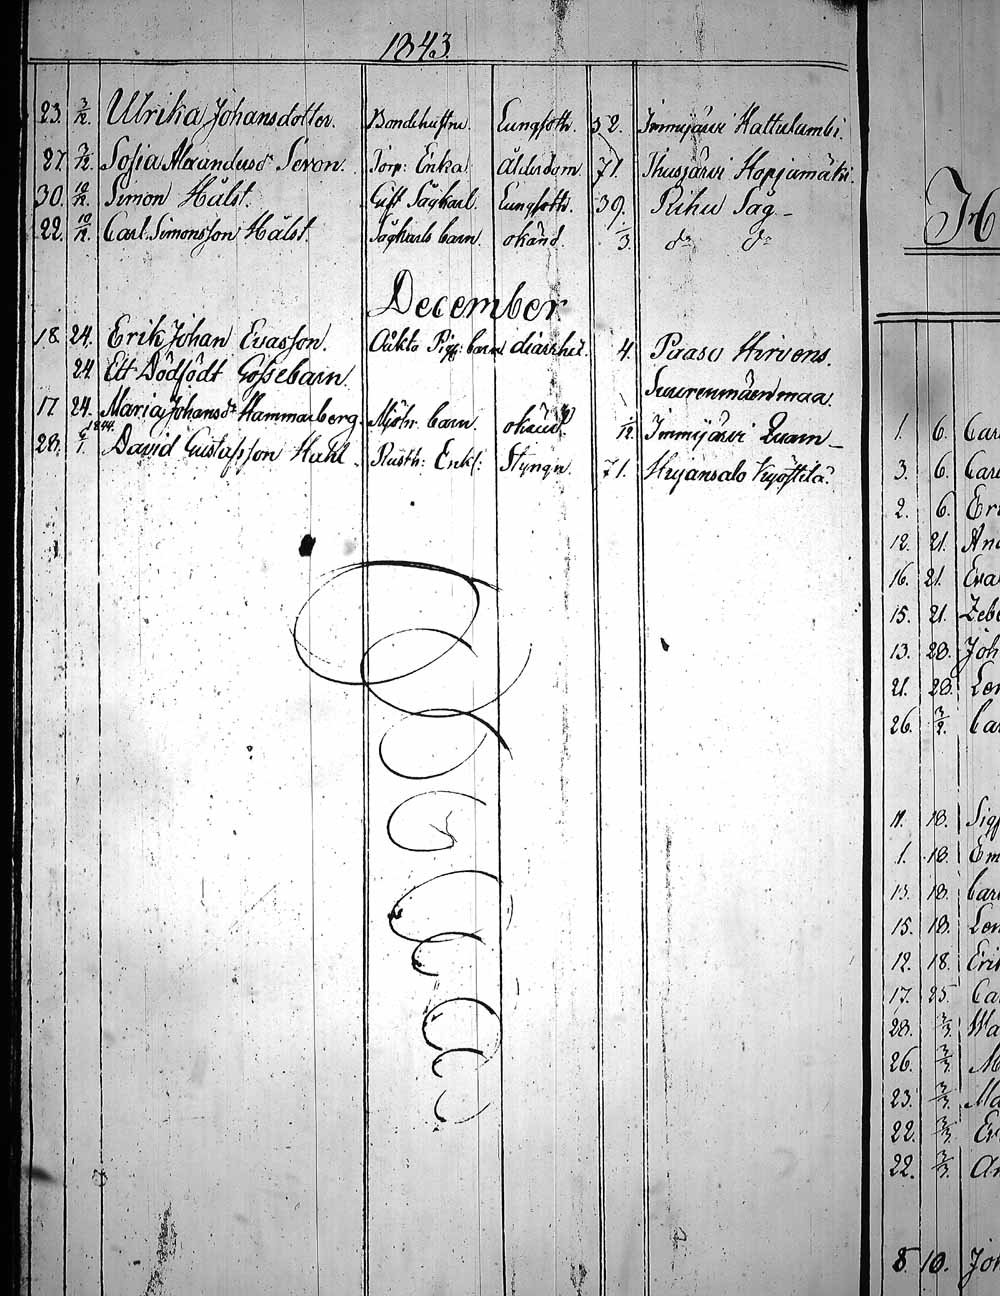 1843.
23. 3/12. Ulrika Johansdotter. Bondehustru. Lungsoth. 52. Immijärvi Hattulambi.
27. 3/12. Sofia Alexandersdr Seron. Torp: Enka Ålderdom. 71.
30. 10/12. Simon Hälst. Gift Sågkarl. Lungsoth. 39. Såg
22. 10/12. Carl Simonsson Hälst. Sågkarls barn. okänd. 1/3. do do
December
18. 24. Erik Johan Evasson. Oäkta Pig. barn diarrhei. 4. Paaso Hirvens.
24. Ett Dödfödt Gossebarn. Suurenmäenmaa
17. 24. Maria Johansdr Hammarberg. Mjöln. barn. okänd. 1/12. Immijärvi Qvarn
1844.
28. 6/1. David Gustafsson Hahl. Rusth: Enkl: Styngn. 71.
1. 6. Car
3. 6. Car
2. 6. Eri
12. 21. And
16. 21. Eva
15. 21. Zeb
13. 28. Joh
21. 28. Len
26. 3/2. Car
11. 18. Sigf
1. 18. Em
13. 18. Carl
15. 18. Len
12. 18. Erik
17. 25. Ca
28. 3/3. Wa
26. 3/3. M
23. 3/3. Ma
22. 3/3. Er
22. 3/3. An
8. 10. Joh